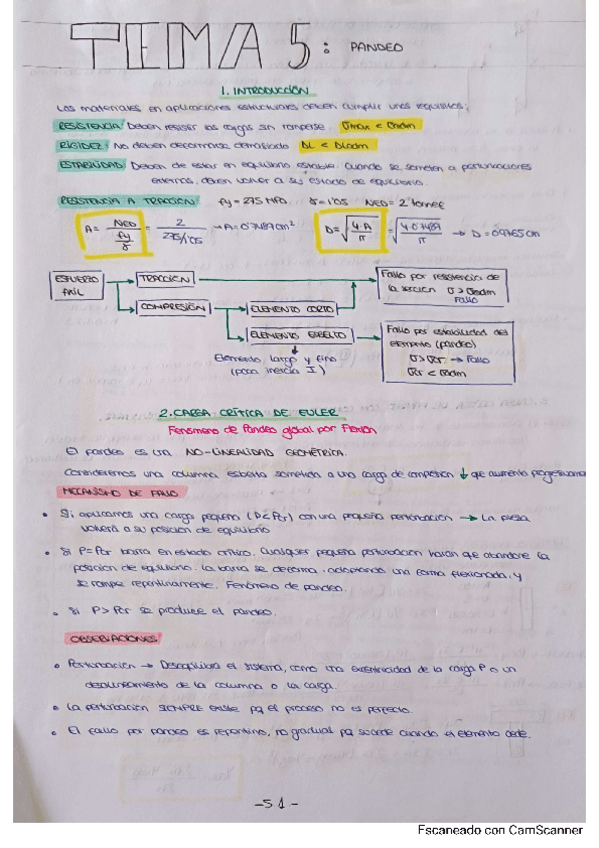 TEMA 5: PANDEO
1. INTRODUCCIÓN
Los materiales en aplicaciones estructurales deben cumplir unos requisitos:
RESISTENCIA: Deben resistir las cargas sin romperse. σmax < σadm
RIGIDEZ: No deben deformarse demasiado ΔL < ΔLadm
ESTABILIDAD: Deben de estar en equilibrio estable. Cuando se someten a perturbaciones
externas, deben volver a su estado de equilibrio.
RESISTENCIA A TRACCIÓN: fy = 275 MPa γ = 1'05 NED = 2 tonnes
A = NED / (fy/γ) = 2 / (275/1'05) → A = 0'7489 cm² D = √(4·A/π) = √(4·0'7489/π) → D = 0'9765 cm
ESFUERZO AXIL
TRACCIÓN
COMPRESIÓN
ELEMENTO CORTO
ELEMENTO ESBELTO
Elemento, largo y fino
(poca inercia I)
Fallo por resistencia de
la sección σ > σadm
Fallo
Fallo por estabilidad del
elemento (pandeo)
σ > σcr → Fallo
σcr < σadm
2. CARGA CRÍTICA DE EULER
Fenómeno de Pandeo global por Flexión
El pandeo es una NO-LINEALIDAD GEOMÉTRICA.
Consideremos una columna esbelta sometida a una carga de compresión ↓ que aumenta progresivamen
MECANISMO DE FALLO
• Si aplicamos una carga pequeña (P<Pcr) con una pequeña perturbación → La pieza
volverá a su posición de equilibrio
• Si P=Pcr barra en estado crítico. Cualquier pequeña perturbación harán que abandone la
posición de equilibrio. La barra se deforma adoptando una forma flexionada y
se rompe repentinamente. Fenómeno de pandeo.
• Si P > Pcr se produce el pandeo.
OBSERVACIONES:
• Perturbación → Desequilibra el sistema, como una excentricidad de la carga P o un
desalineamiento de la columna o la carga.
• La perturbación SIEMPRE existe pq el proceso no es perfecto.
• El fallo por pandeo es repentino, no gradual pq sucede cuando el elemento cede.
-51-
Escaneado con CamScanner